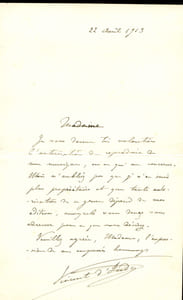 22 Avril 1913
Madame
Je vous donne très volontiers
l'autorisation de reproduire de
ma musique, en ce qui me concerne.
Mais n'oubliez pas que je n'en suis
plus propriétaire et que toute auto-
risation de ce genre dépend de mes
éditeurs, auxquels vous devez vous
adresser pour ce que vous désirez.
Veuillez agréer, Madame, l'expres-
sion de mes respectueux hommages
Vincent d'Indy